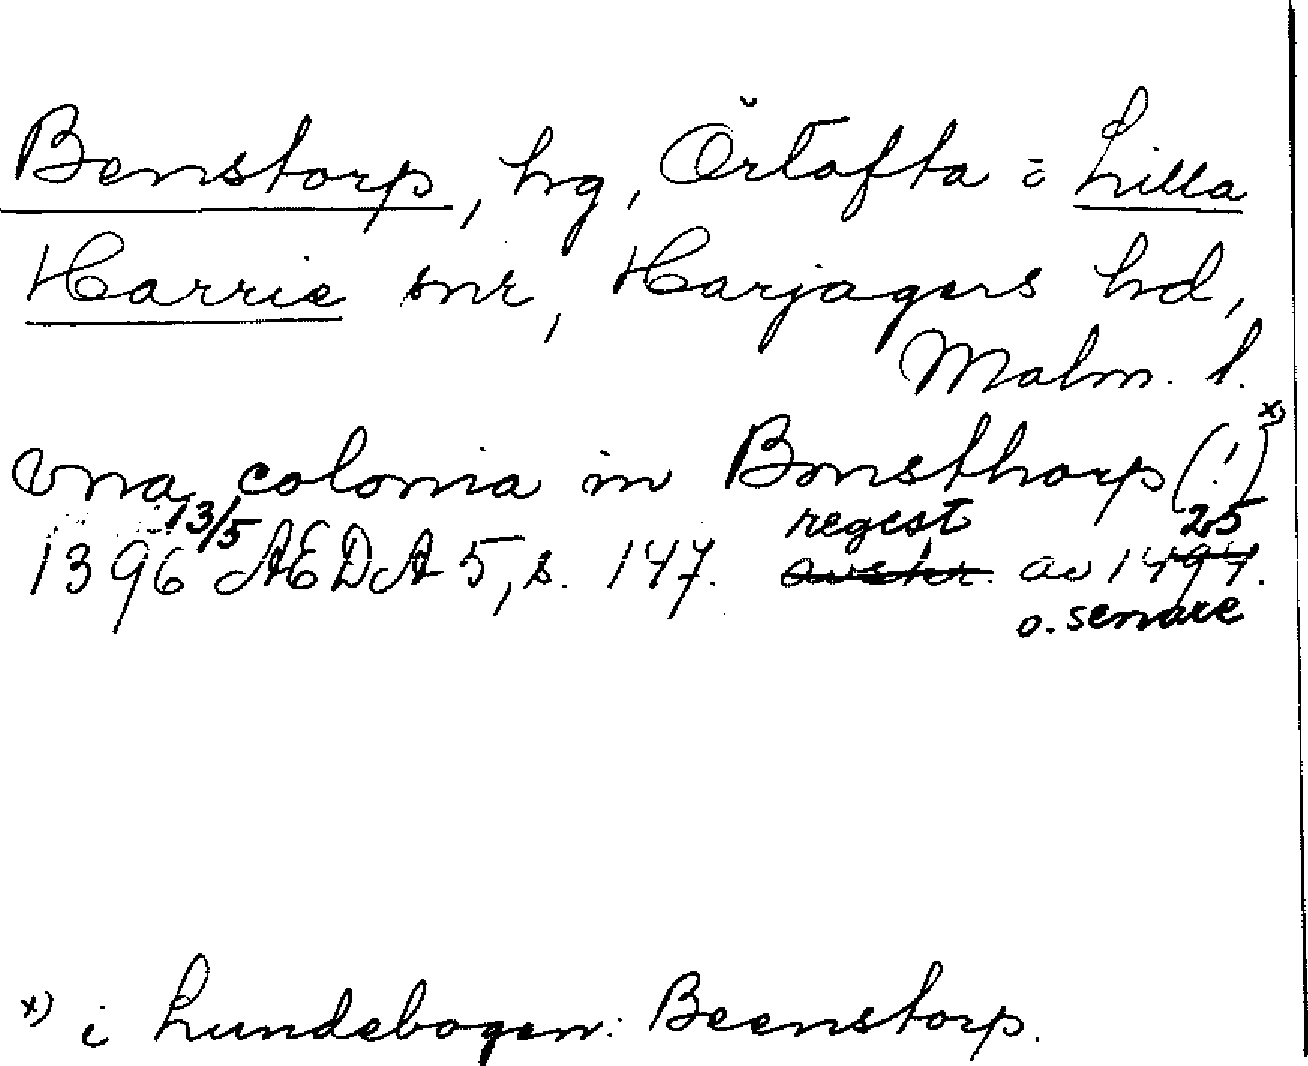 Benstorp, hg, Örtofta i Lilla
Harrie snr, Harjagers hd,
Malm. l.
vna colonia in Bonsthorp (!) x)
13/5 regest 25
1396 AEDA 5, s. 147. avskr. av 1494.
o. senare
x) i Lundebogen: Beenstorp.